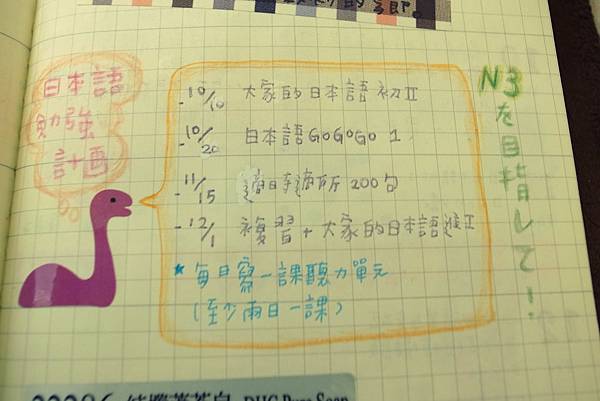 日本語
勉強
計画
-10/10 大家的日本語 初Ⅱ
-10/20 日本語GOGOGO 1
-11/15 適時適所 200句
-12/1 複習+大家的日本語進Ⅱ
* 每日寫一課聽力單元
(至少兩日一課)
N3を目指して!